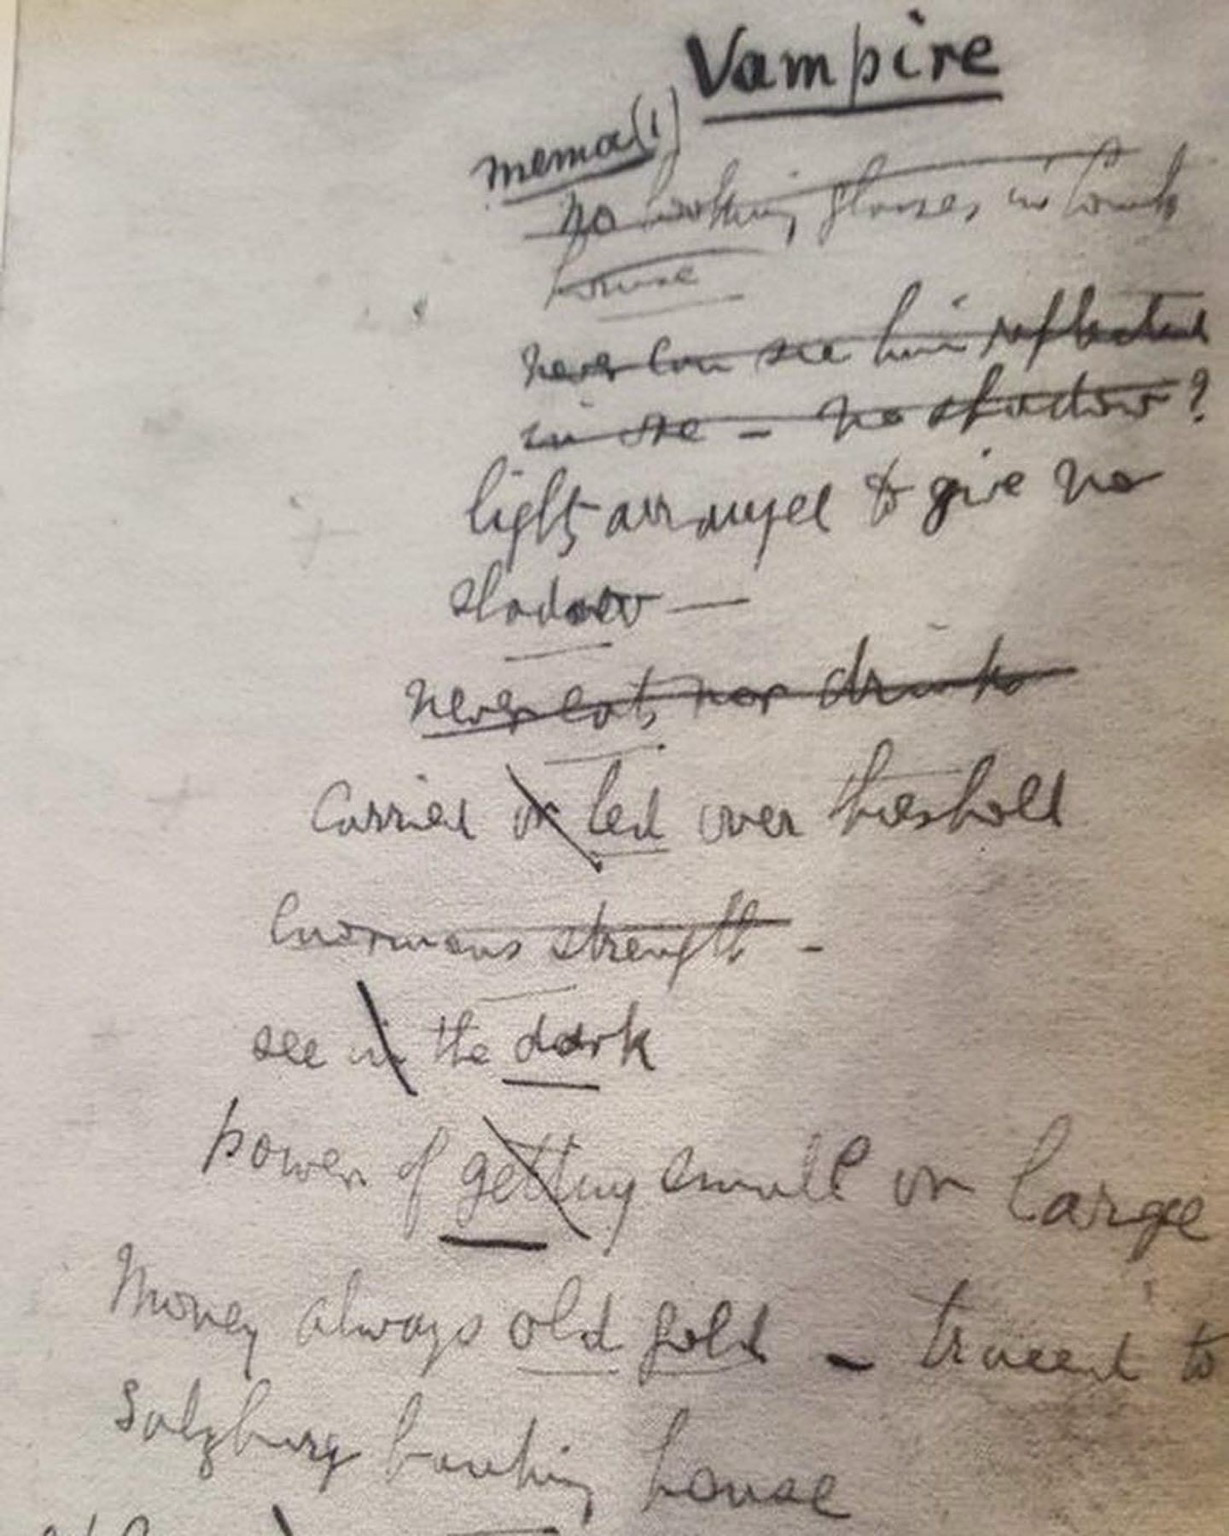 Vampire
memo (1)
no looking glasses in Count's
house
never can see him reflected
in one - no shadow?
lights arranged to give no
shadow —
never eats nor drinks
Carried or led over threshold
enormous strength -
see in the dark
power of getting small or large
Money always old gold - traced to
Salzburg banking house